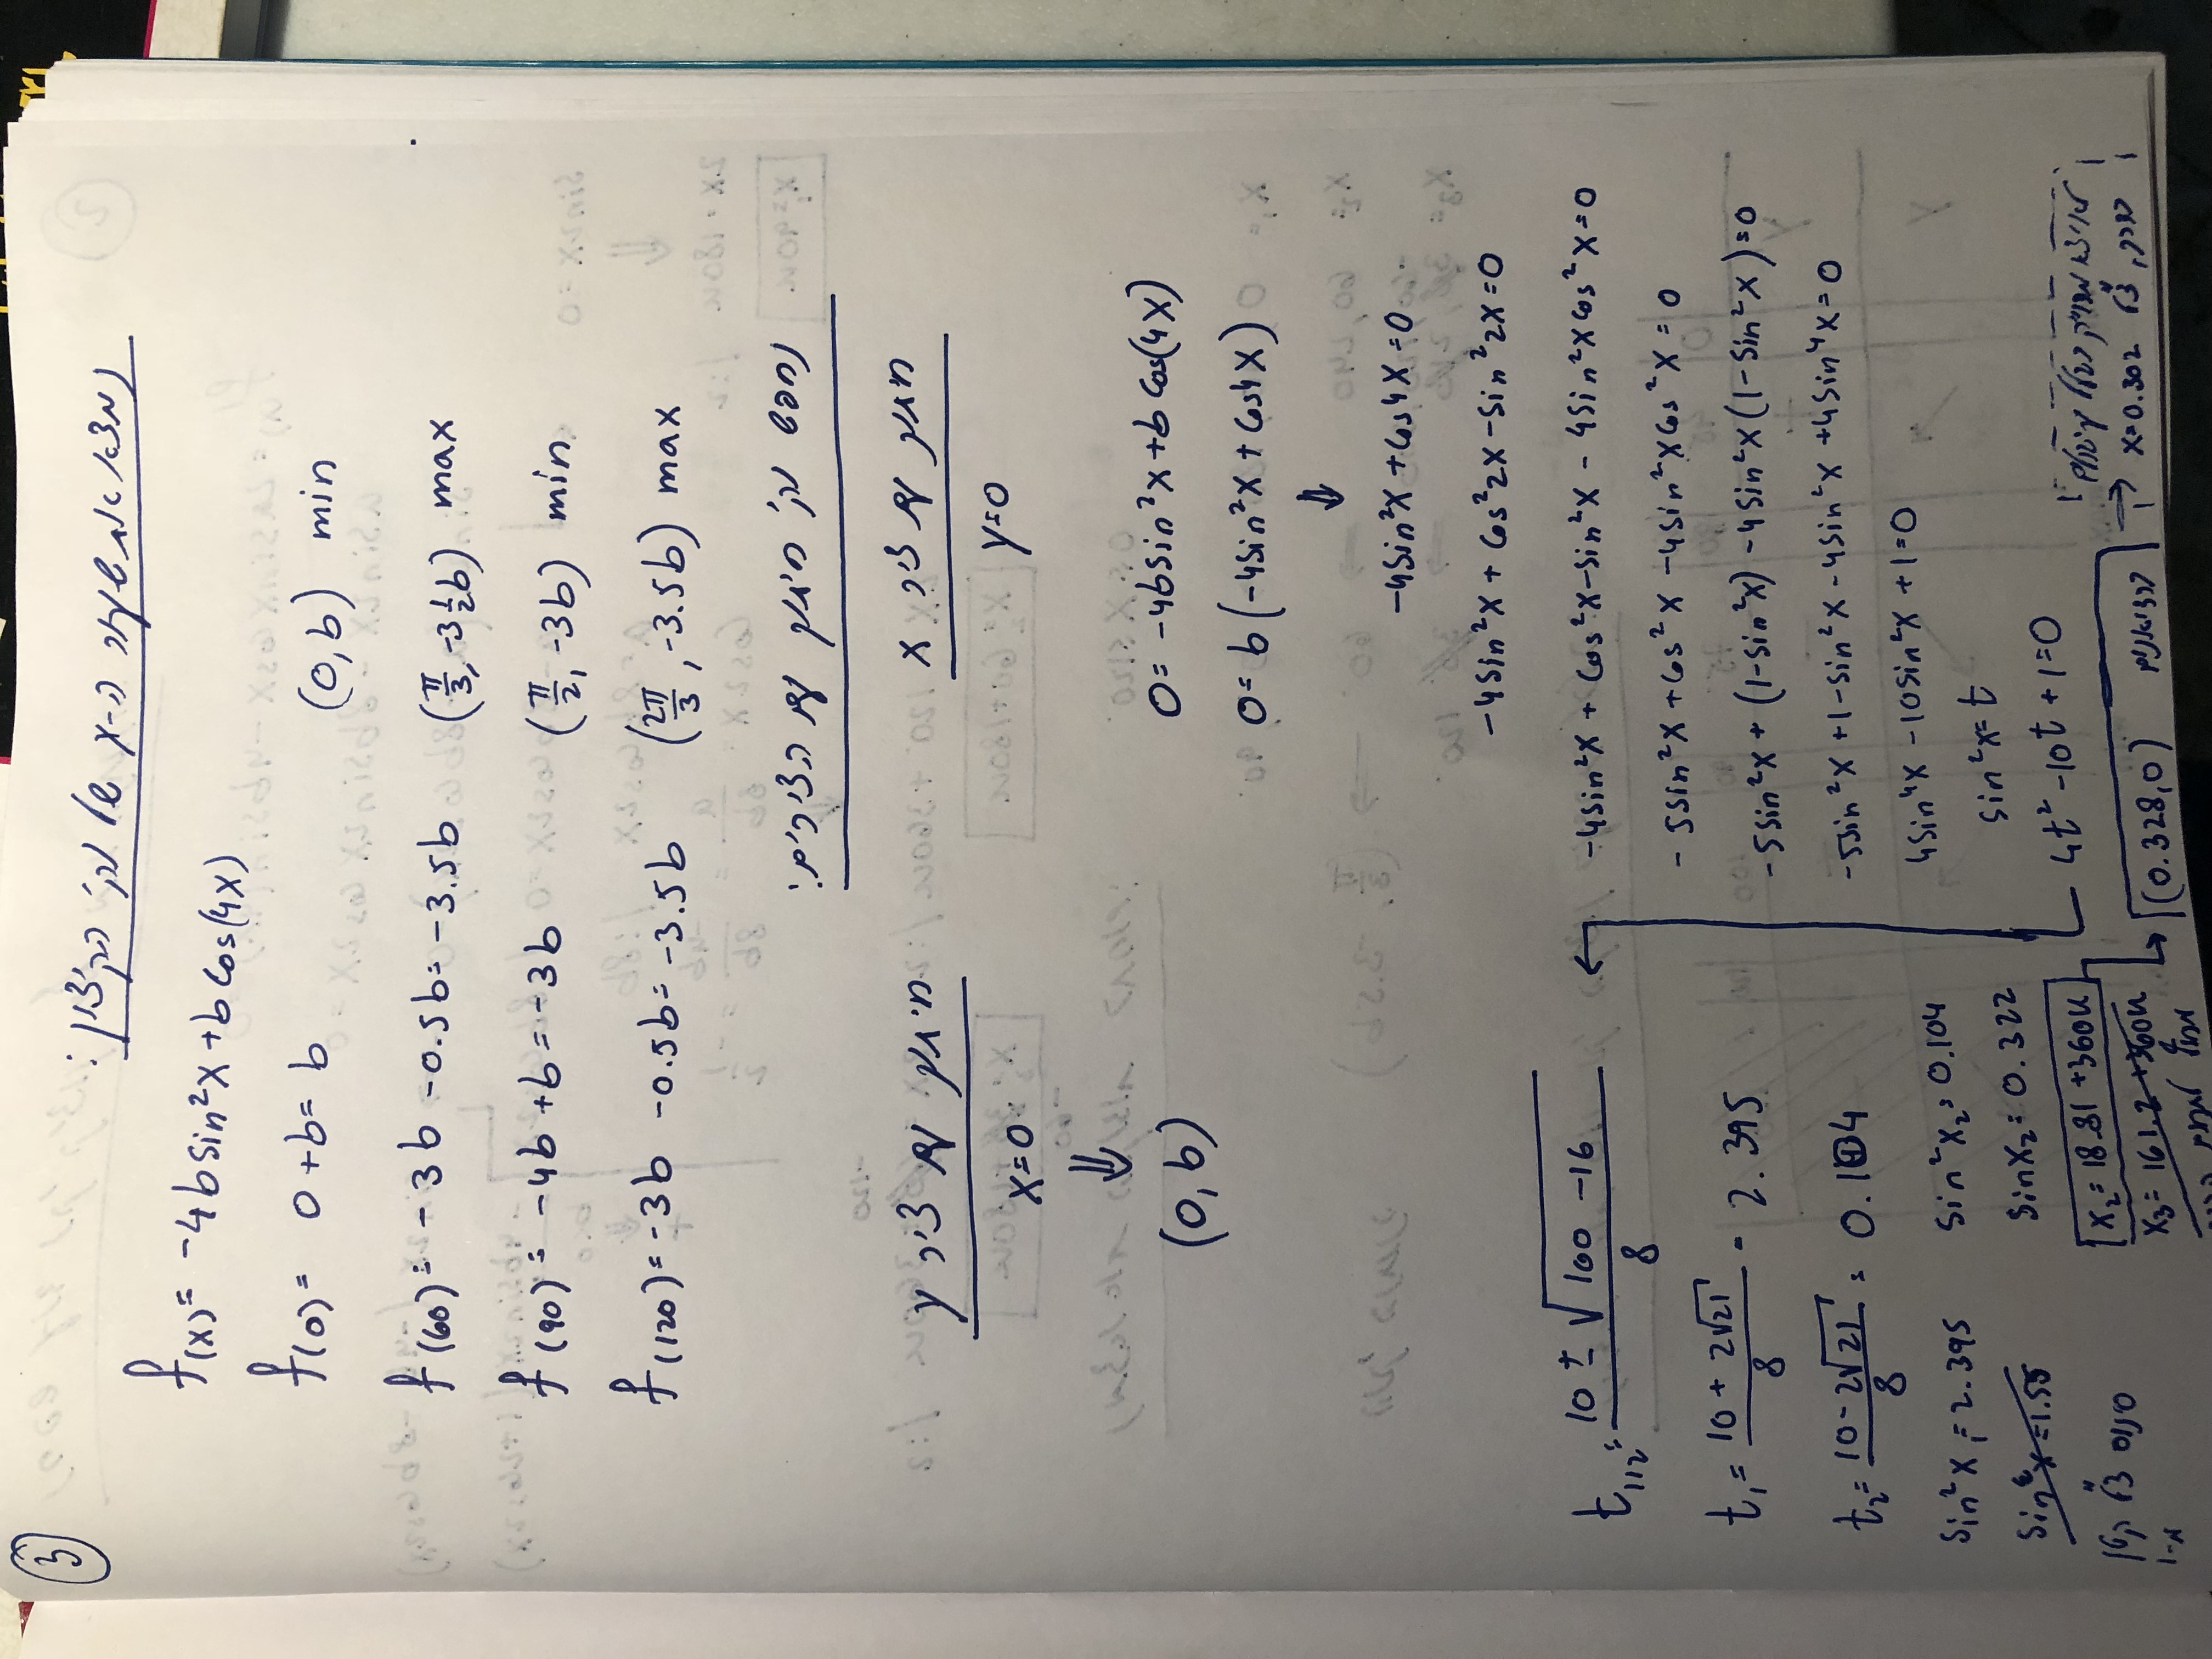 3
נמצא את שיעור ה-x של נק' הקיצון:
f(x)= -4b sin²x + b cos(4x)
f(0)= 0+b= b (0,b) min
f(60)= -3b -0.5b= -3.5b (π/3, -3½b) max
f(90)= -4b +b = -3b (π/2, -3b) min
f(120)= -3b -0.5b= -3.5b (2π/3, -3.5b) max
נחפש נק' חיתוך עם הצירים:
חיתוך עם ציר x
y=0
0= -4bsin²x+b cos(4x)
0= b(-4sin²x + cos4x)
⇓
-4sin²x + cos4x =0
-4sin²x + cos²2x-sin²2x=0
-4sin²x + cos²x-sin²x - 4sin²xcos²x=0
-5sin²x +cos²x -4sin²xcos²x = 0
-5sin²x + (1-sin²x) -4sin²x(1-sin²x)=0
-5sin²x +1-sin²x -4sin²x +4sin⁴x=0
4sin⁴x -10sin²x +1=0
sin²x= t
4t² -10t +1=0
t₁,₂= (10 ± √(100 -16))/8
t₁= (10 + 2√21)/8 = 2.395
t₂= (10-2√21)/8 = 0.104
sin²x₁=2.395 sin²x₂=0.104
sin²x=1.55 sinx₂=0.322
סינוס צ"ל קטן
מ-1
x₂= 18.81 +360k
x₃= 161.2 +360k
(0.328,0) ברדיאנים → לא יצא מדוייק בגלל עיגולים
בדרך, צ"ל x=0.302
חיתוך עם ציר y
x=0
⇓
(0,b)